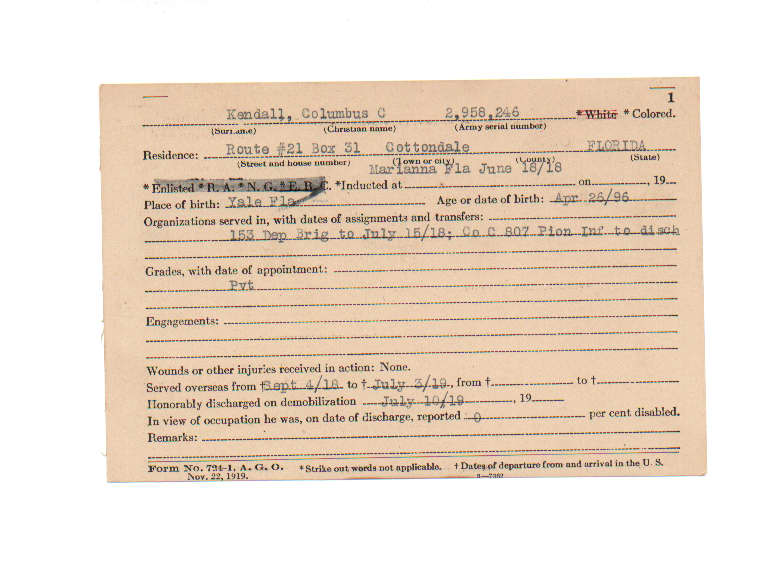 1
Kendall, Columbus C 2,958,246 * White * Colored.
(Surname) (Christian name) (Army serial number)
Residence: Route #21 Box 31 Cottondale FLORIDA
(Street and house number) (Town or city) (County) (State)
Marianna Fla June 18/18
* Enlisted * R. A. * N. G. * E. R. C. *Inducted at on , 19
Place of birth: Yale Fla Age or date of birth: Apr 26/96
Organizations served in, with dates of assignments and transfers:
153 Dep Brig to July 15/18; Co C 807 Pion Inf to disch
Grades, with date of appointment:
Pvt
Engagements:
Wounds or other injuries received in action: None.
Served overseas from † Sept 4/18 to † July 3/19, from † to †
Honorably discharged on demobilization July 10/19 , 19
In view of occupation he was, on date of discharge, reported 0 per cent disabled.
Remarks:
Form No. 724-1, A. G. O. * Strike out words not applicable. † Dates of departure from and arrival in the U. S.
Nov. 22, 1919. 3—7362